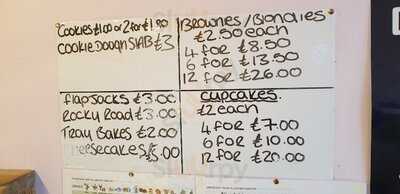 Cookies £1.00 or 2 for £1.50
COOKIE DOUGH SLAB £3
BROWNIES/Blondies
£2.50 each
4 FOR £8.50
6 FOR £13.50
12 FOR £26.00
Flapjacks £3.00
ROCKY ROAD £3.00
TRAY BAKES £2.00
Cheesecakes £5.00
CUPCAKES.
£2 each
4 FOR £7.00
6 FOR £10.00
12 FOR £20.00